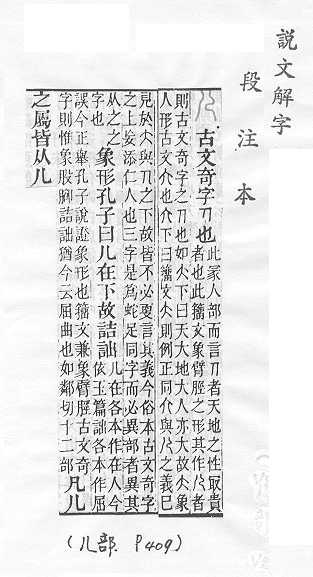 說文解字
段注本
儿 古文奇字人也
此冡人部而言人者天地之性㝡貴
者也此籒文象臂脛之形其作儿者
則古文奇字之人也如大下曰天大地大人亦大故大象
人形古文大也亣下曰籒文大則例正同亣與儿之義已
見於大與人之下故皆不必更言其義今俗本古文奇字
之上妄添仁人也三字是爲蛇足同字而必異部者異其
从之之
字也
象形孔子曰儿在下故詰詘
儿在各本作在人今
依玉篇詘各本作屈
誤今正舉孔子說證象形也籒文兼象臂脛古文奇
字則惟象股腳詰詘猶今云屈曲也如鄰切十二部
凡儿
之屬皆从儿
(儿部. P409)